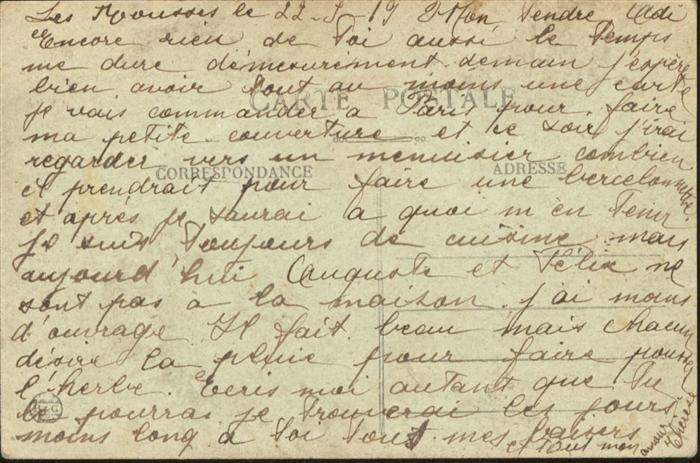 Les Rousses le 22-5-19 Mon tendre Adi
Encore rien de toi aussi le temps
me dure démesurement demain j'espère
bien avoir tout au moins une carte
CARTE POSTALE
je vais commander à Paris pour faire
ma petite couverture et ce soir j'irai
regarder vers un menuisier combien
CORRESPONDANCE ADRESSE
il prendrait pour faire une bercelonnette
et après je saurai à quoi m'en tenir
je suis toujours de cuisine mais
aujourd'hui Auguste et Félix ne
sont pas à la maison. j'ai moins
d'ouvrage. Il fait beau mais chacun
désire la pluie pour faire pousser
l'herbe. Ecris moi autant que tu
le pourras je trouverai les jours
moins long à toi tout mes baisers
et tout mon
amour